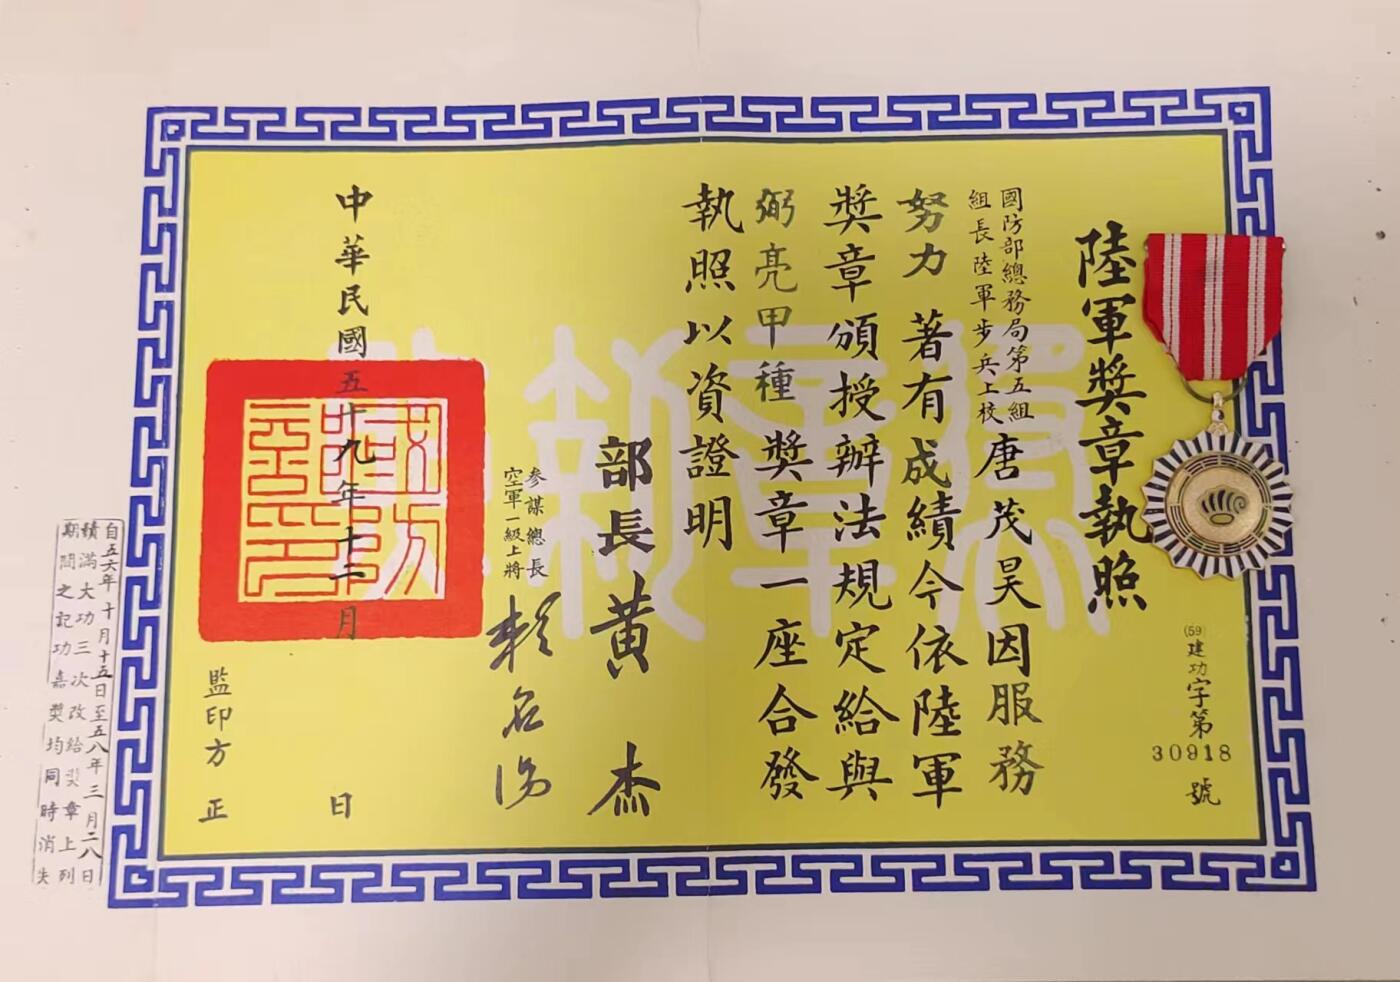 陸軍獎章執照
(59)建功字第
30918
號
國防部總務局第五組
組長陸軍步兵上校
唐茂昊因服務
努力 著有成績今依陸軍
獎章頒授辦法規定給與
弼亮甲種獎章一座合發
執照以資證明
部長黃 杰
參謀總長
空軍一級上將
賴名湯
中華民國五十九年十二月 日
監印方 正
自五六年十月十五日至五八年三月二八日
積滿大功三次改給獎章上列
期間之記功嘉獎均同時消失